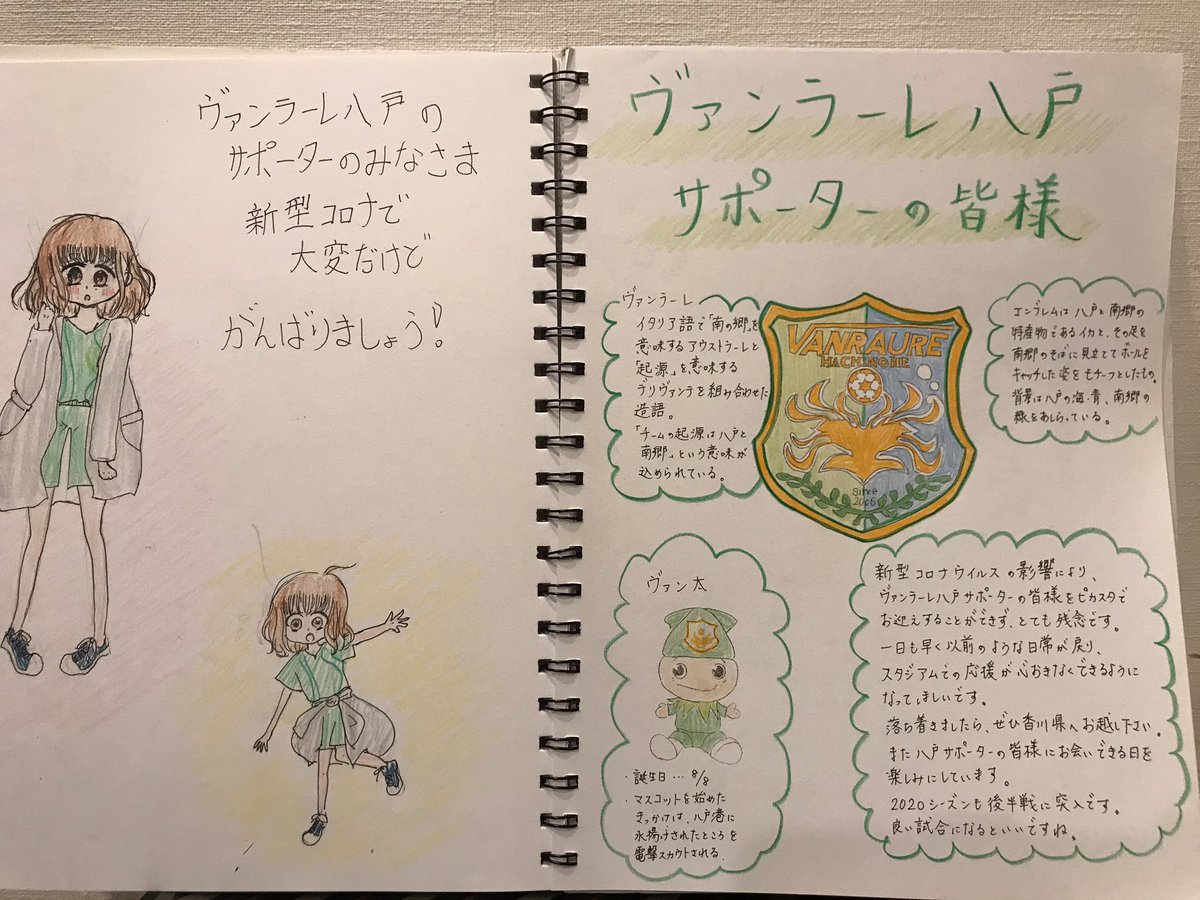 ヴァンラーレ八戸の
サポーターのみなさま
新型コロナで
大変だけど
がんばりましょう!
ヴァンラーレ八戸
サポーターの皆様
ヴァンラーレ
イタリア語で「南の郷」を
意味するアウストラーレと
「起源」を意味する
デリヴァンテを組み合わせた
造語。
「チームの起源は八戸と
南郷」という意味が
込められている。
VANRAURE
HACHINOHE
Since
2006
エンブレムは八戸と南郷の
特産物であるイカと、その足を
南郷のそばに見立ててボールを
キャッチした姿をモチーフとしたもの。
背景は八戸の海・青、南郷の
緑をあしらっている。
ヴァン太
・誕生日…8/8
・マスコットを始めた
きっかけは、八戸港に
水揚げされたところを
電撃スカウトされる.
新型コロナウイルスの影響により、
ヴァンラーレ八戸サポーターの皆様をピカスタで
お迎えすることができず、とても残念です。
一日も早く以前のような日常が戻り、
スタジアムでの応援が心おきなくできるように
なってほしいです。
落ち着きましたら、ぜひ香川県へお越し下さい。
また八戸サポーターの皆様にお会いできる日を
楽しみにしています。
2020シーズンも後半戦に突入です。
良い試合になるといいですね。